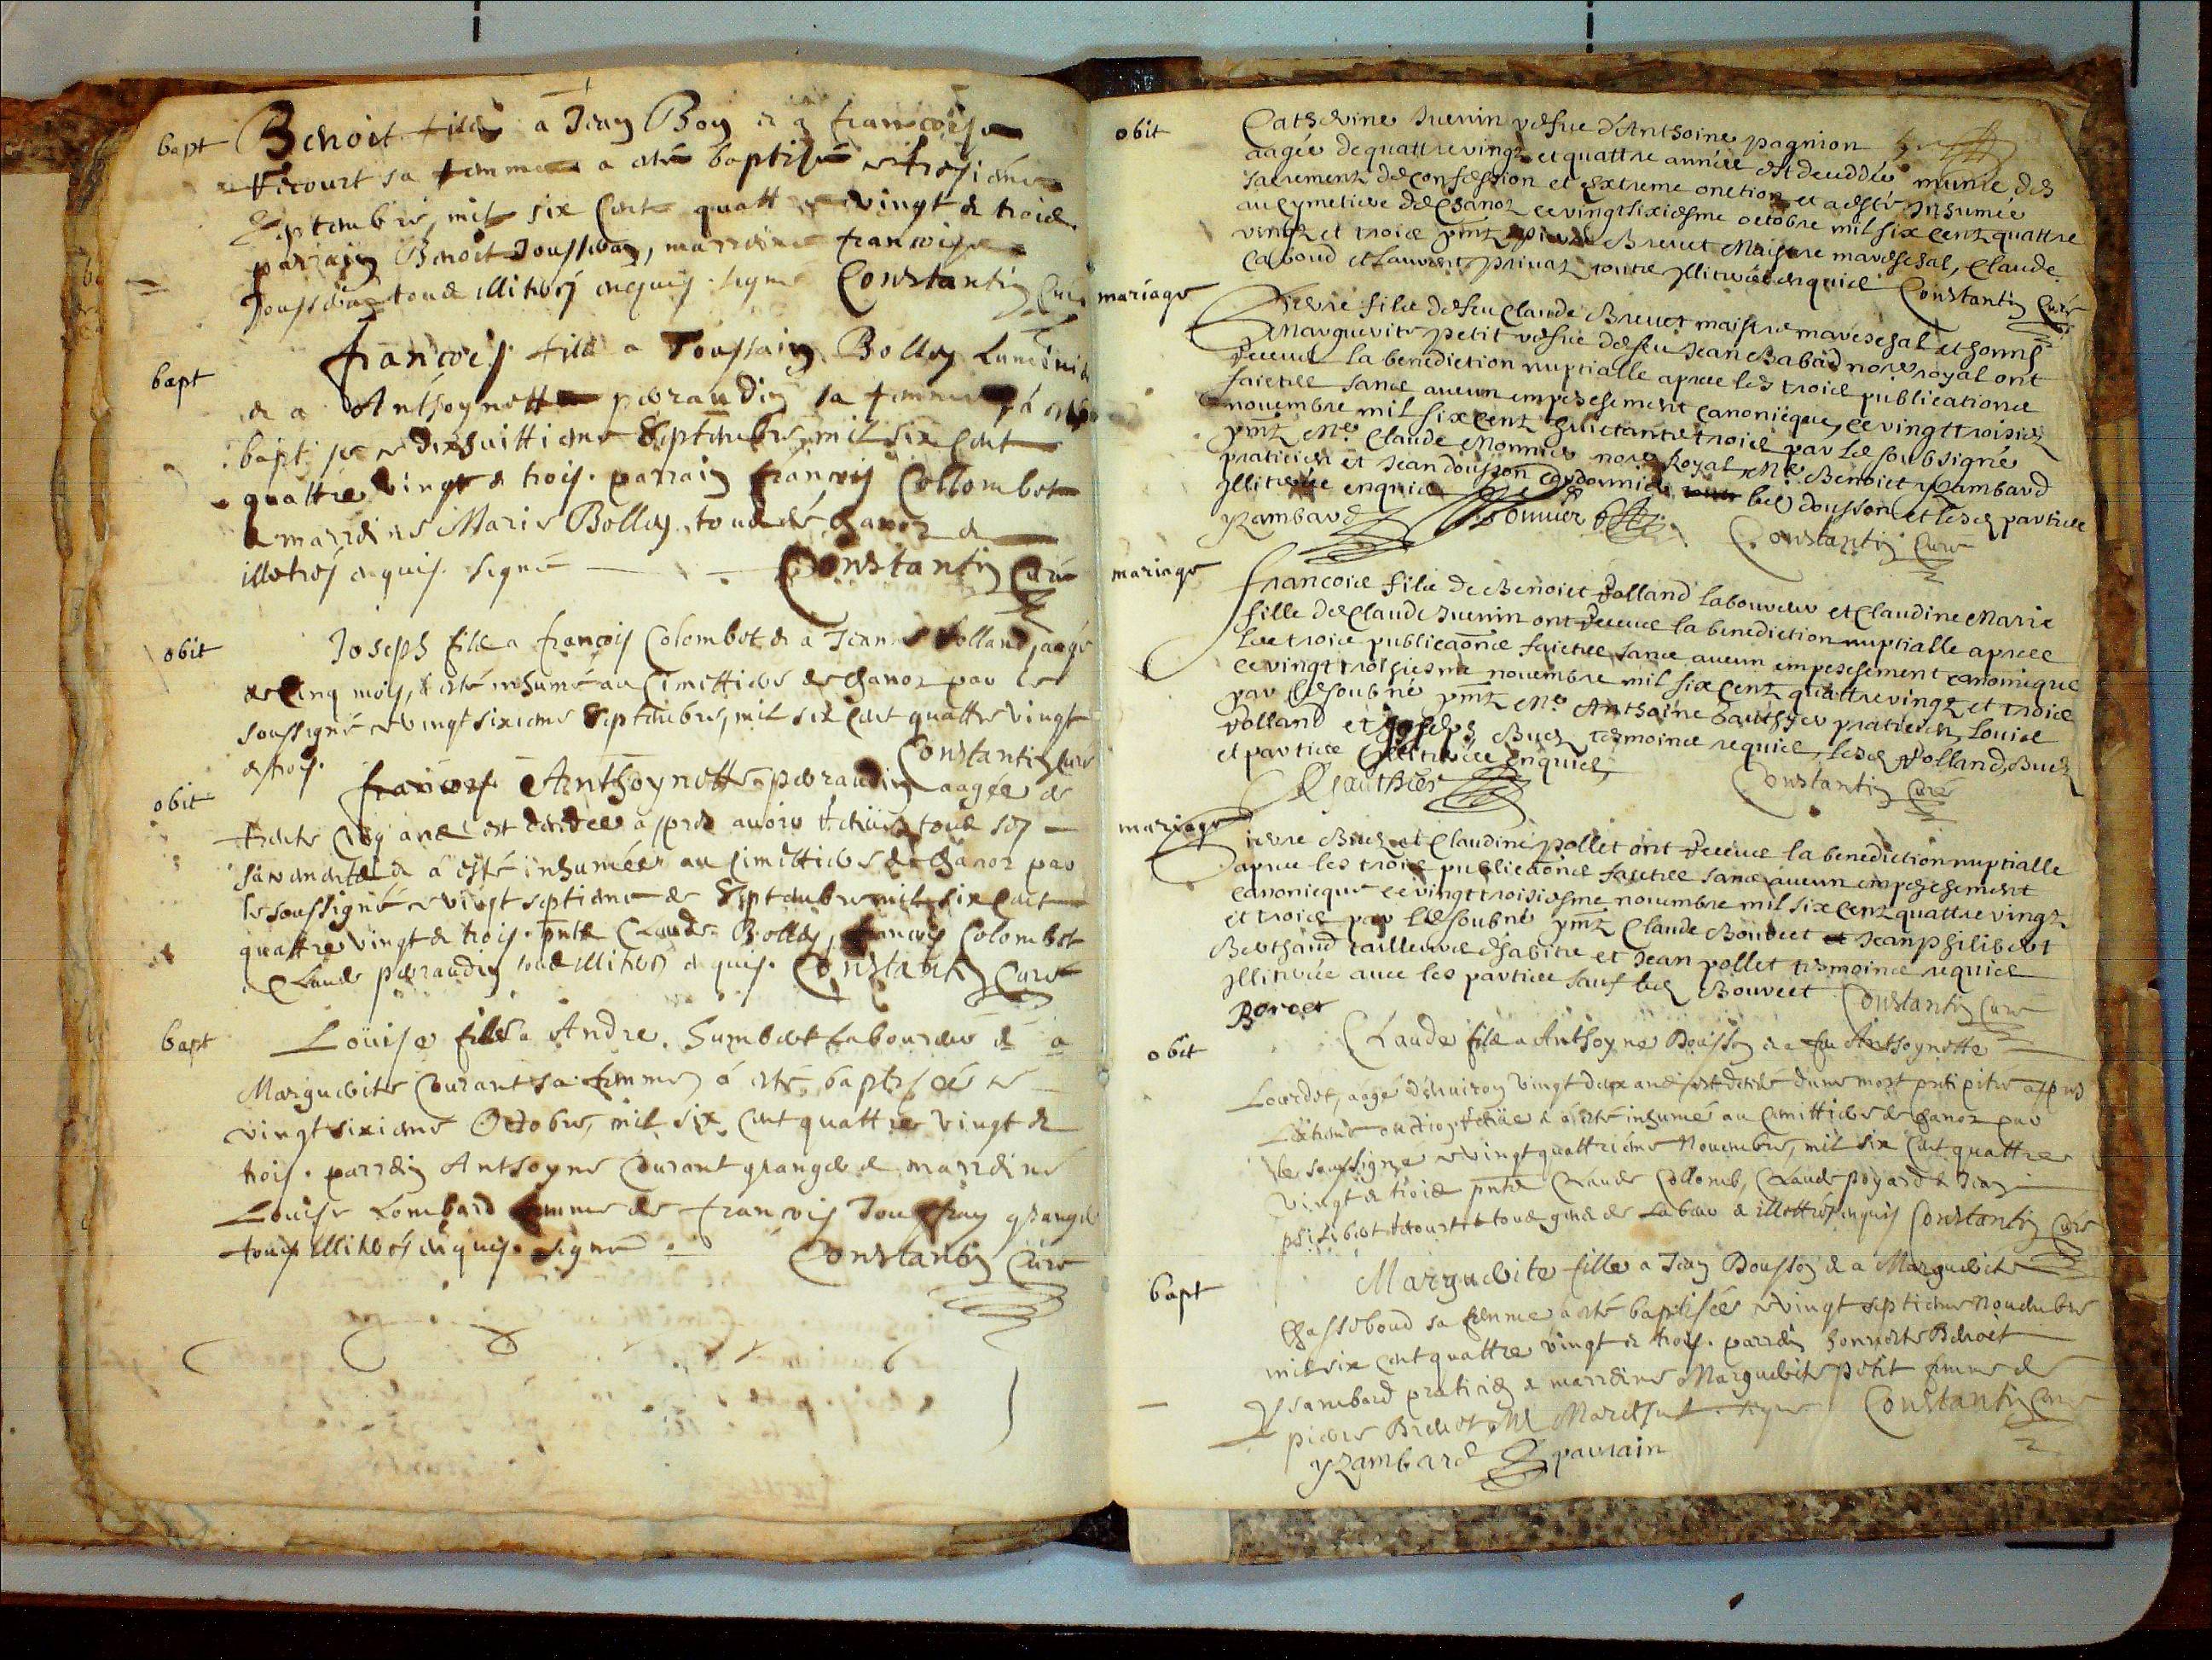 bapt Benoit filz a Jean Boy & a francoise
Ticourt sa femme a esté baptisé ce troisieme
Septembre, mil six cent quattre vingt & trois
parrain Benoit Jousseran, marreine francoise
Jousseran tous illitrés enquis. signé Constantin Curé
bapt francois filz a Toussain Bolley
& a Anthoynette peraudin sa femme a esté
baptisé ce dixhuittieme Septembre, mil six cent
quattre vingt & trois. parrain francois Collombet
& marreine Marie Bolley, tous de Chanoz &
illetrés enquis. signé Constantin Curé
obit Joseph filz a francois Colombet & a Jeanne Volland, aagé
de cinq mois, a esté inhumé au Cimittiere de Chanoz par le
soussigné ce vingt sixieme Septembre, mil six cent quattre vingt
& trois. Constantin Curé
obit Anthoynette peraudin aagée de
trente cinq ans est decedee appres avoir receu tous ses
sacrements & a esté inhumée au Cimittiere de Chanoz par
le soussigné ce vingt septieme de Septembre mil six cent
quattre vingt & trois. pnts Claude Bolley, francois Colombet
Claude peraudin tous illitrés enquis. Constantin Curé
bapt Loüise fille a Andre Humbert laboureur & a
Marguerite Durant sa femme a esté baptisée ce
vingt sixieme Octobre, mil six cent quattre vingt &
trois. parrein Anthoyne Durant granger & marreine
Louise Lombard femme de francois Jouffray granger
tous illitrés enquis. signé. Constantin Curé
obit Catherine Juenin vefue d'Anthoine pagnion
aagée de quattre vingt et quattre année est deceddée munie des
sacrementz de confession et extreme onction et a esté Inhumée
au cymetiere de Chanoz ce vingt sixiesme octobre mil six centz quattre
vingtz et trois pntz pierre Brevet Maistre mareschal, Claude
Caboud et Laurent privaz touts yllitrés enquis Constantin Curé
mariage Pierre filz de feu Claude Brevet maistre mareschal et honneste
Marguerite petit vefue de feu Jean Babad nore royal ont
receue la benediction nuptialle apres les trois publications
faictes sans aucun empeschement canonicque, ce vingt troisies
novembre mil six centz huictante trois par le soubsigné
pntz Me Claude Monnier nore Royal Me Benoict yzambard
praticien et Jean dousson cordonnier lesd dousson et lesd parties
yllitrées enquis
yzambard Monnier Constantin Curé
mariage francois filz de Benoict Volland laboureur et Claudine Marie
fille de Claude Juenin ont receue la benediction nuptialle apres
les trois publicaons faictes sans aucun empeschement canonicque
ce vingt troisiesme novembre mil six centz quattre vingtz et trois
par le soubné pntz Me Anthoine Gauthier praticien, Louis
Volland et Joseph Buez tesmoins requis, lesd Volland, Buez
et parties yllitrées enquis
Gauthier Constantin Curé
mariage Pierre Buez et Claudine pollet ont receue la benediction nuptialle
apres les trois publicaons faictes sans aucun empeschement
canonicque ce vingt troisiesme novembre mil six centz quattre vingtz
et trois par le soubné pntz Claude Bouvet Jean philibert
Berthaud tailleurs d'habitz et Jean pollet tesmoins requis
yllitrés avec les parties sauf led Bouvet Constantin Curé
obit Claude filz a Anthoyne Dousson & a feu Anthoynette
Lourdet, aagé d'environ vingt deux ans est decedé d'une mort appres
Lextreme onction receue & a esté inhumé au Cimittiere de Chanoz par
le soussigné ce vingt quattrieme Novembre, mil six cent quattre
vingt & trois pnts Claude Collomb, Claude poyard & Jean
philibert tous gens de labeur & illettrés enquis Constantin Curé
bapt Marguerite fille a Jean Dousson & a Marguerite
Chasseboud sa femme a esté baptisée ce vingt septieme Novembre
mil six cent quattre vingt & trois. parrein honneste Benoit
Ysambard praticien & marreine Marguerite petit femme de
pierre Brevet M Marechal. signé Constantin Curé
yzambard parrain